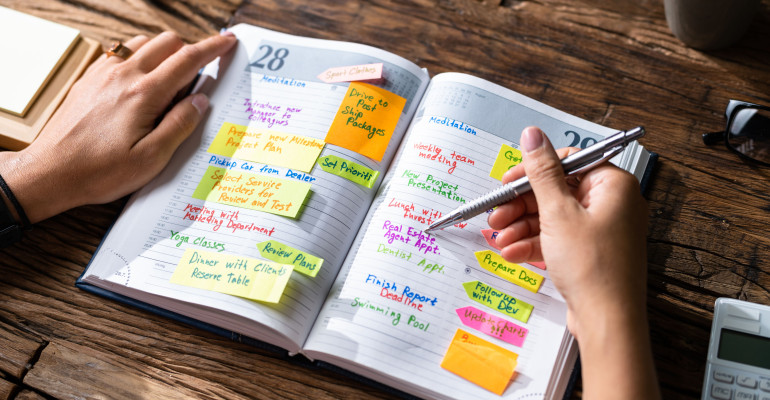 28
Sport Clothes
Meditation
Drive to
Post
Ship
Packages
Introduce new
Manager to
Colleagues
Prepare new Milestone
Project Plan
Set Prioriti
Pickup Car from Dealer
Select Service
Providers for
Review and Test
Meeting with
Marketing Department
Yoga Classes
Review Plans
Dinner with Clients
Reserve Table
29
Meditation
Weekly team
meeting
New Project
Presentation
Lunch with
Real Estate
Agent Appt.
Dentist Appt.
Prepare Docs
Finish Report
Deadline
Followup
with Dev
Swimming Pool